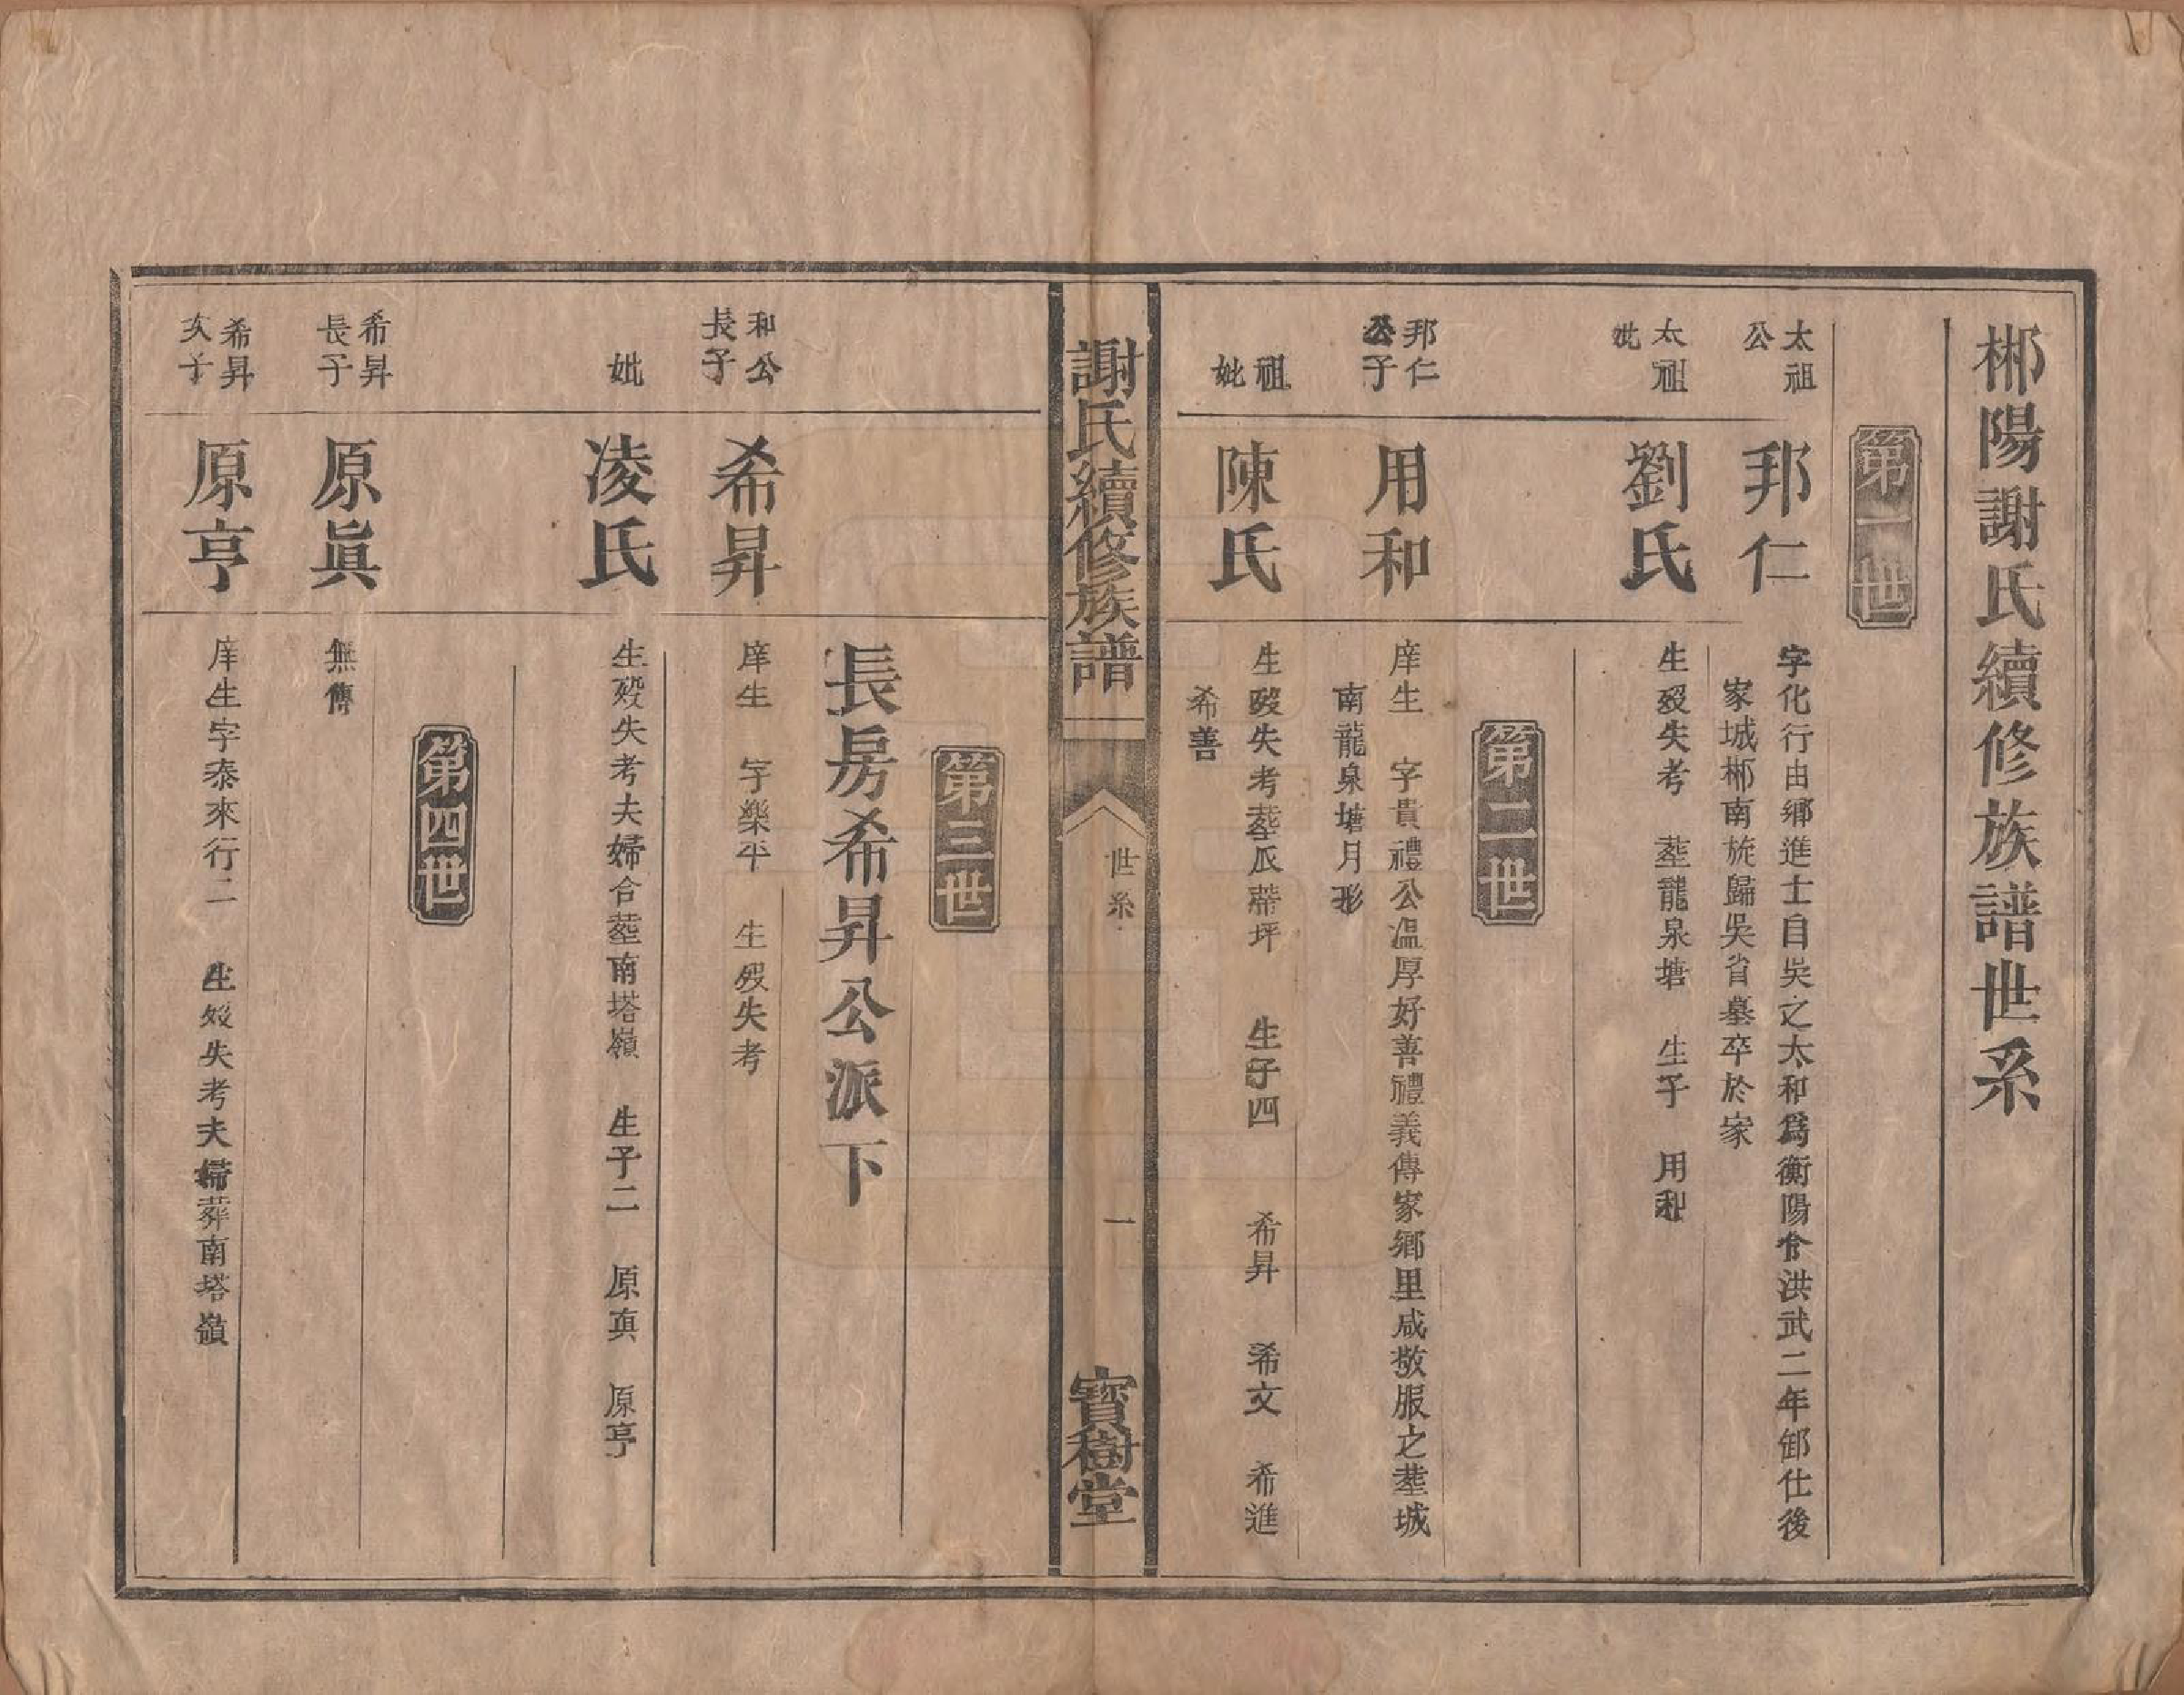 郴陽謝氏續修族譜世系
第一世
太祖
公
邦仁
字化行由鄉進士自吳之太和爲衡陽令洪武二年卸仕後
家城郴南旋歸吳省墓卒於家
太祖
妣
劉氏
生歿失考 塟龍泉塘 生子 用和
第二世
邦仁
公子
用和
庠生 字貴禮公溫厚好善禮義傳家鄉里咸敬服之塟城
南龍泉塘月形
祖
妣
陳氏
生歿失考塟瓜蒂坪 生子四 希昇 希文 希進
希善
謝氏續修族譜
世系
一
寶樹堂
第三世
長房希昇公派下
和公
長子
希昇
庠生 字樂平 生歿失考
妣
凌氏
生歿失考夫婦合塟南塔嶺 生子二 原真 原亨
第四世
希昇
長子
原眞
無傳
希昇
次子
原亨
庠生字泰來行二 生歿失考夫婦葬南塔嶺